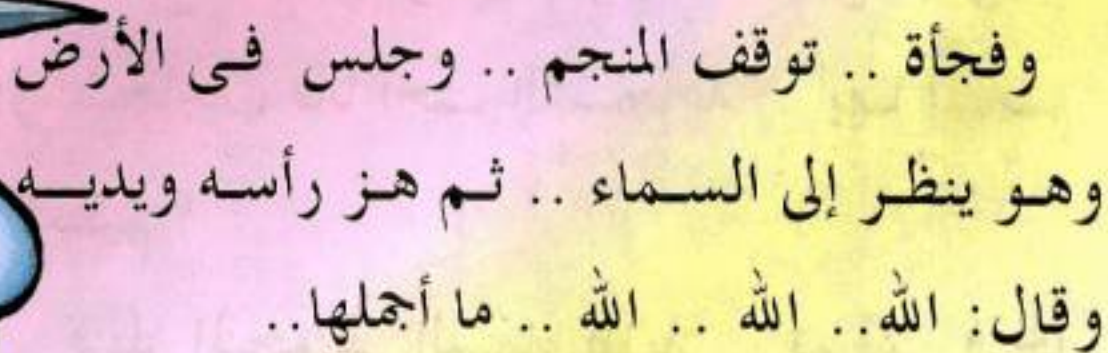 وفجأة .. توقف المنجم .. وجلس فى الأرض
وهو ينظر إلى السماء .. ثم هز رأسه ويديه
وقال: الله.. الله .. الله .. ما أجملها..